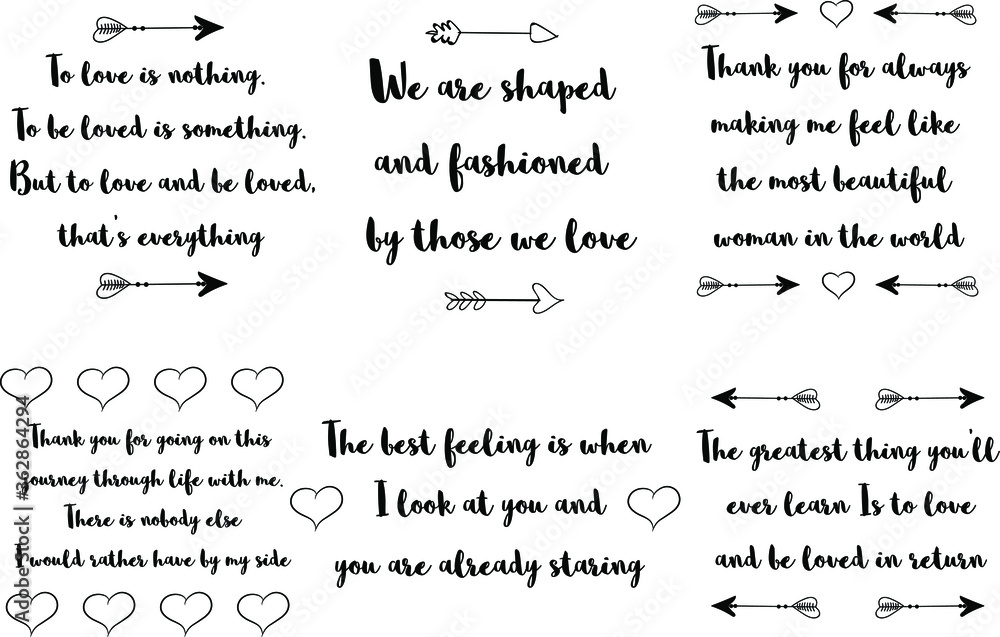 To love is nothing.
To be loved is something.
But to love and be loved,
that's everything
We are shaped
and fashioned
by those we love
Thank you for always
making me feel like
the most beautiful
woman in the world
Thank you for going on this
journey through life with me.
There is nobody else
I would rather have by my side
The best feeling is when
I look at you and
you are already staring
The greatest thing you'll
ever learn Is to love
and be loved in return
Adobe Stock | #362864294